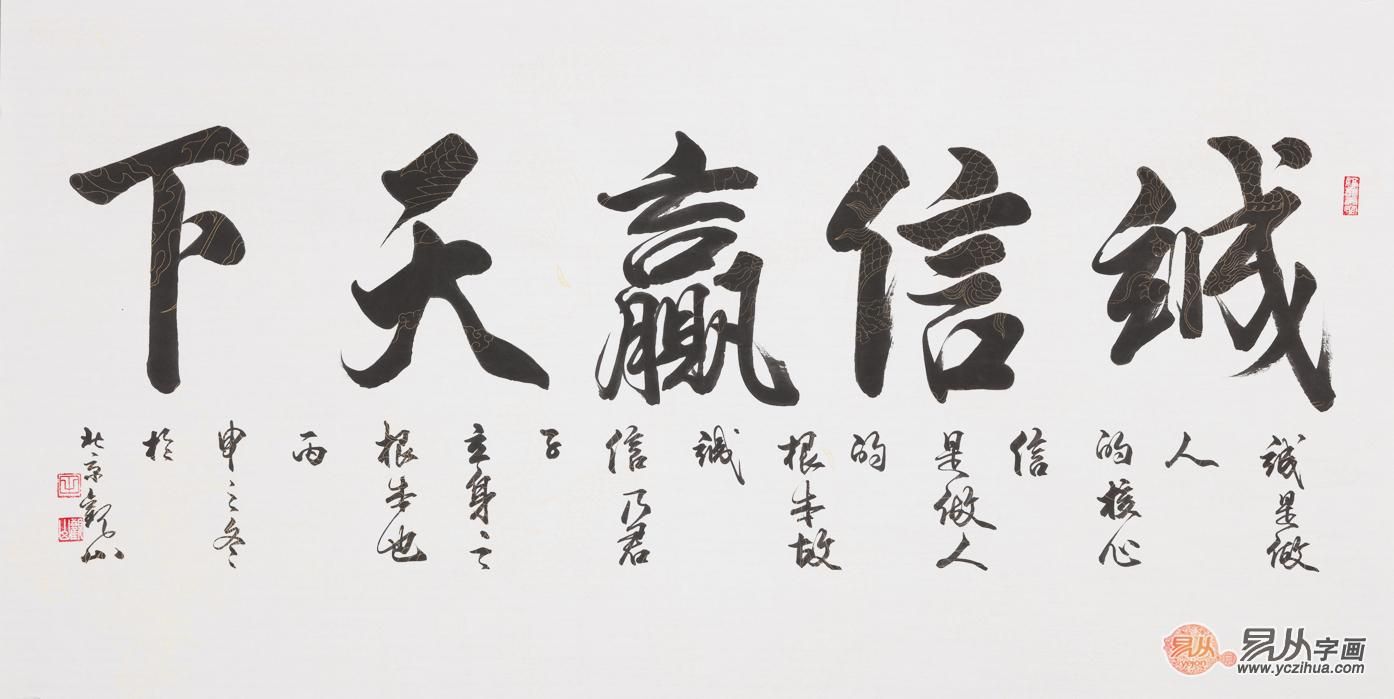 誠信贏天下
誠是做
人
的核心
信
是做人
的
根本故
誠
信乃君
子
立身之
根本也
丙
申之冬
於
北京觀山
易从字画
www.yczihua.com